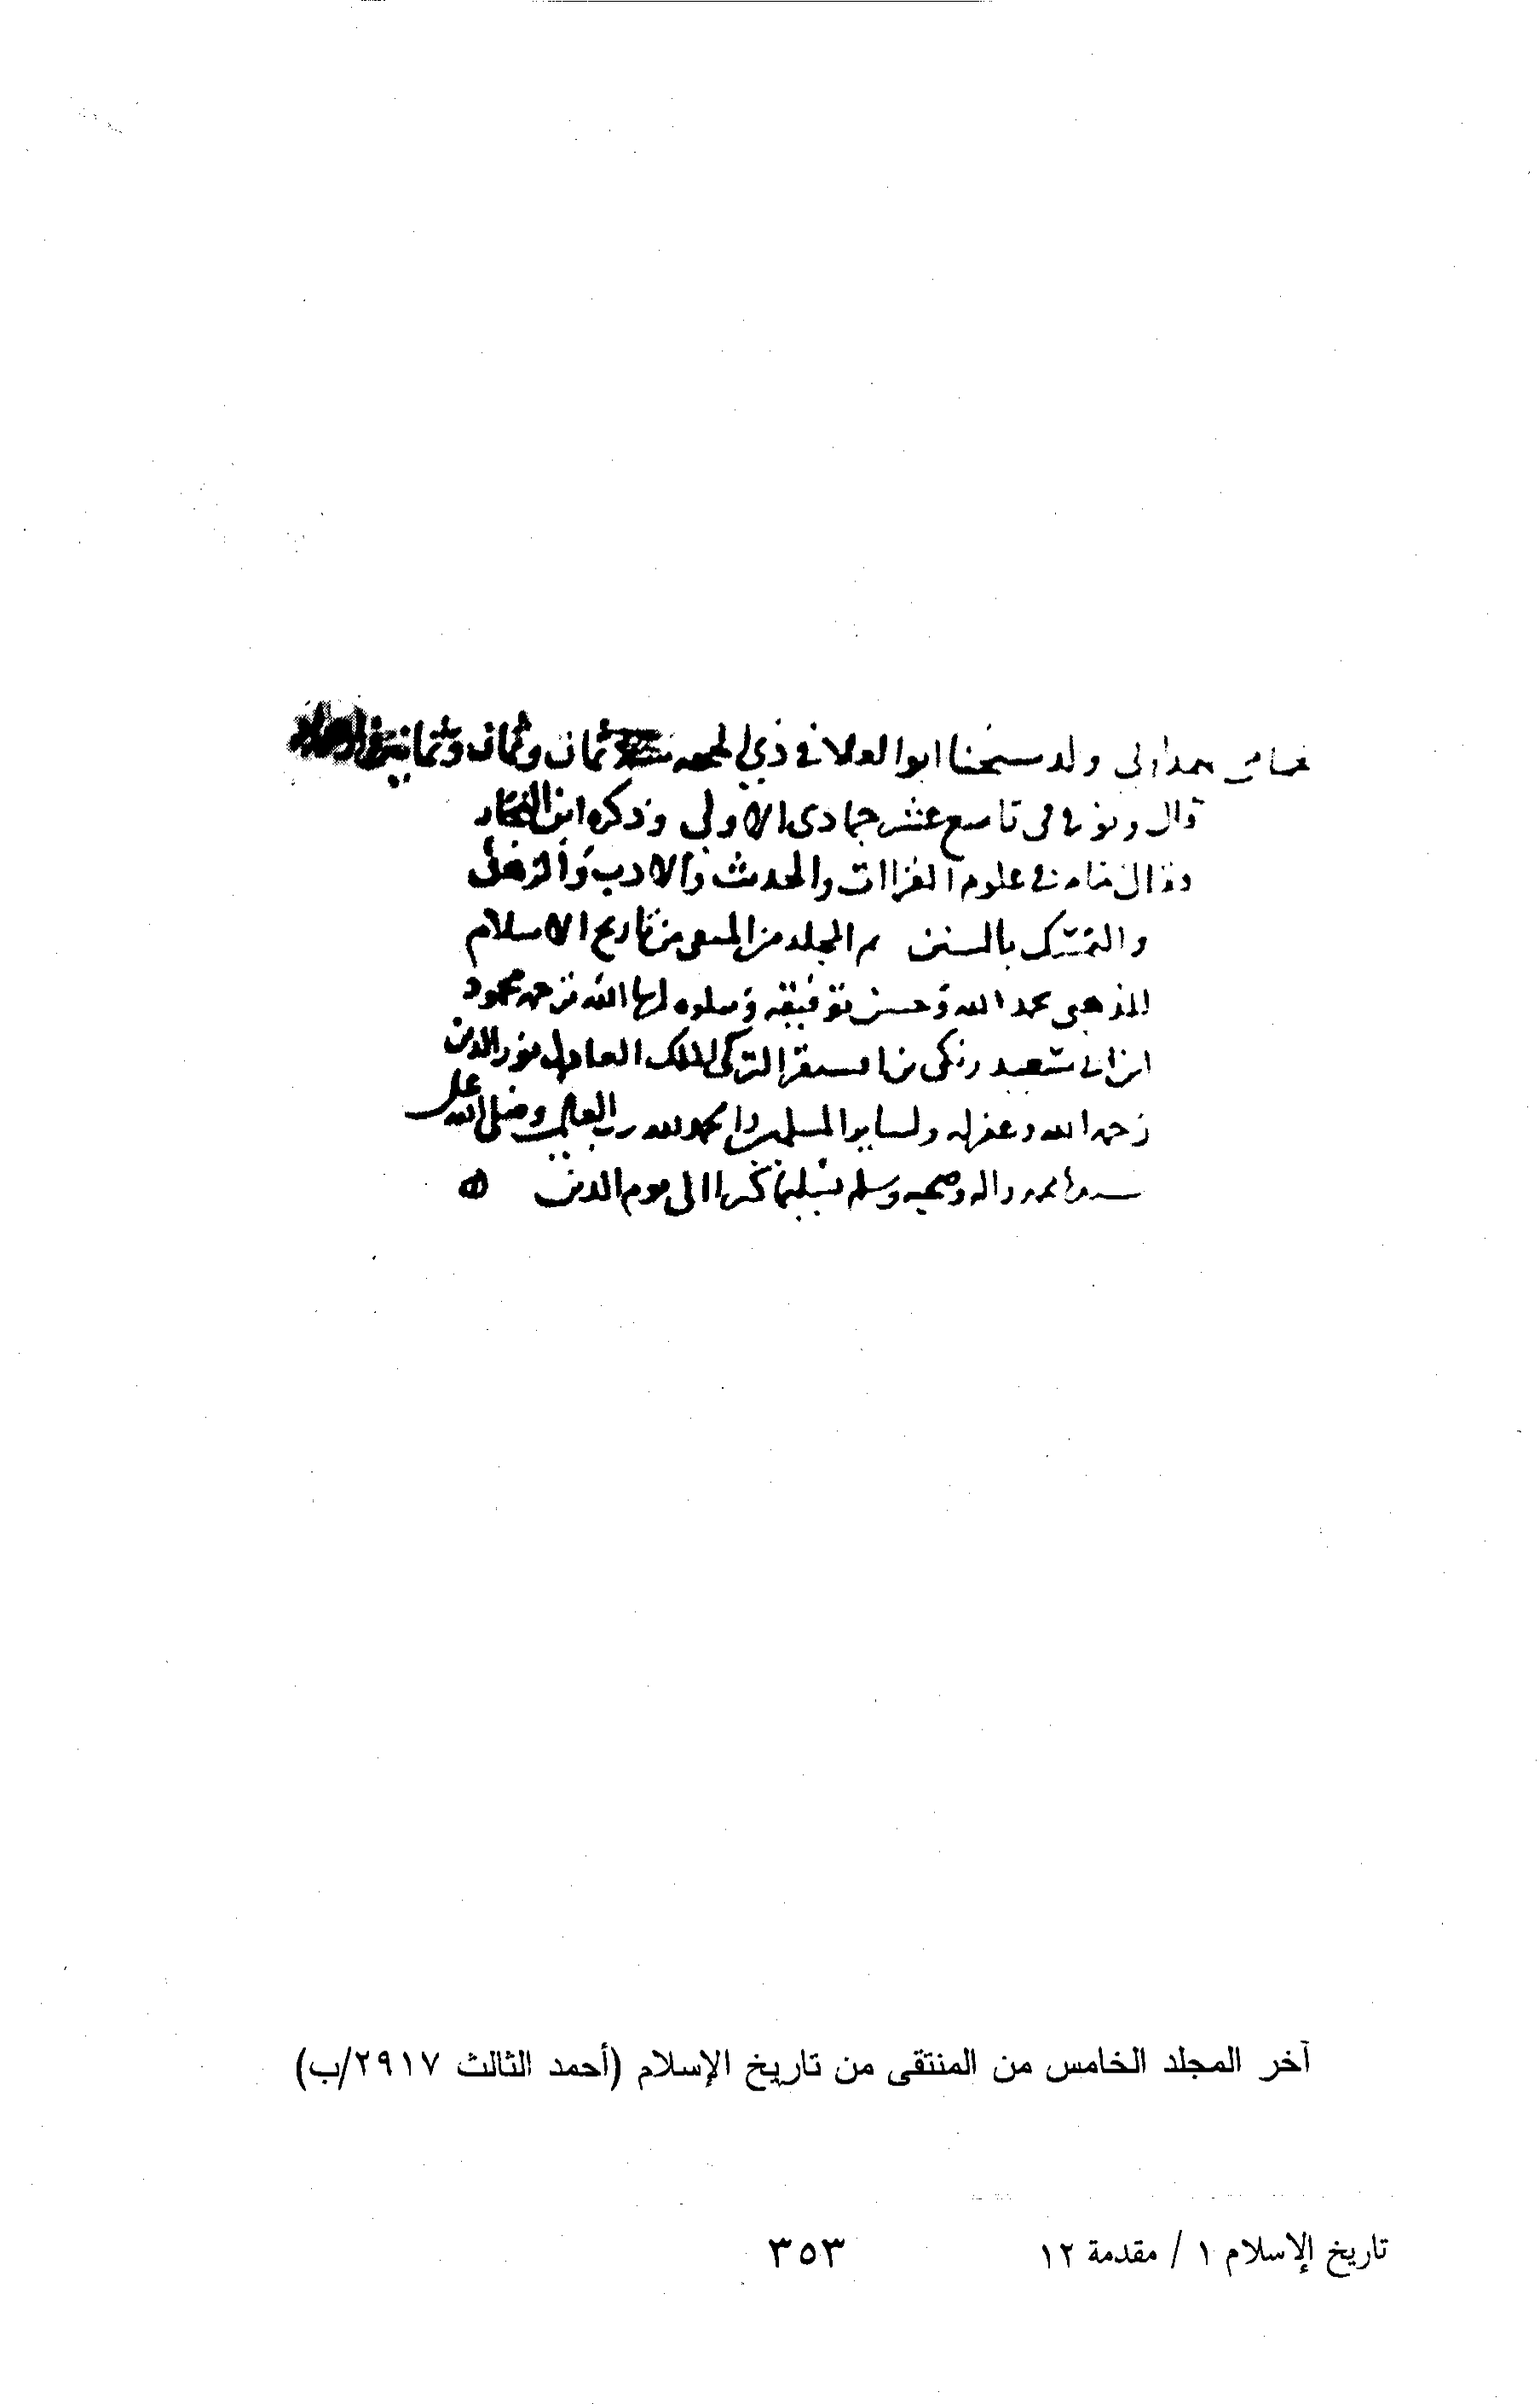 ولد شيخنا ابو العلا في ذي الحجه سنة ثمان وثمان وثمانين
قال وتوفي في تاسع عشر جمادى الاولى وذكره ابن النجار
فقال امام في علوم القراات والحديث والادب والزهد
والتمسك بالسنن تم المجلد من المنتقى من تاريخ الاسلام
للذهبي بحمد الله وحسن توفيقه وسلوه ان شا الله ترجمه محمود
ابن زنكي بن اقسنقر التركي الملك العادل نور الدين
رحمه الله وغفر له ولساير المسلمين والحمد لله رب العالمين وصلى الله على
سيدنا محمد واله وصحبه وسلم تسليما كثيرا الى يوم الدين
آخر المجلد الخامس من المنتقى من تاريخ الإسلام (أحمد الثالث ٢٩١٧/ب)
تاريخ الإسلام ١ / مقدمة ١٢
٣٥٣